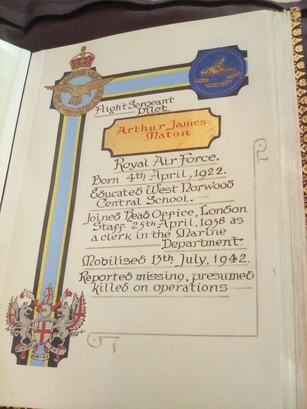 Flight Sergeant
Pilot
Arthur James
Maton
Royal Air Force.
Born 4th April, 1922.
Educated West Norwood
Central School.
Joined Head Office, London
Staff 25th April, 1938 as
a clerk in the Marine
Department.
Mobilised 13th July, 1942.
Reported missing, presumed
killed on operations